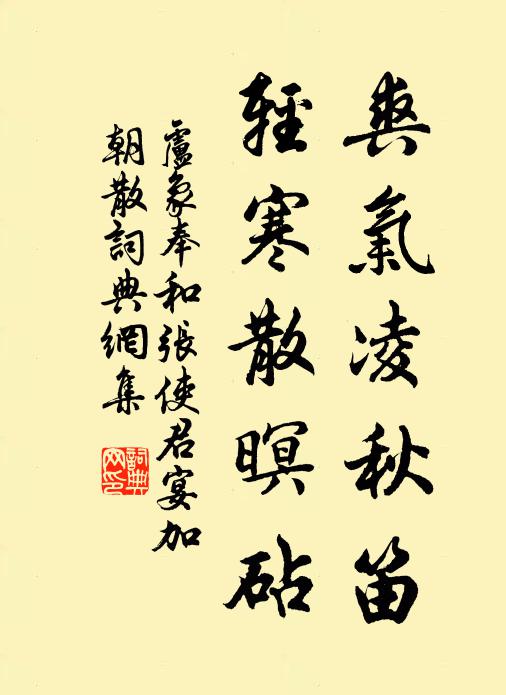 爽氣凌秋笛
輕寒散暝砧
盧象奉和張使君宴加
朝散詞典網集
詞典
网印